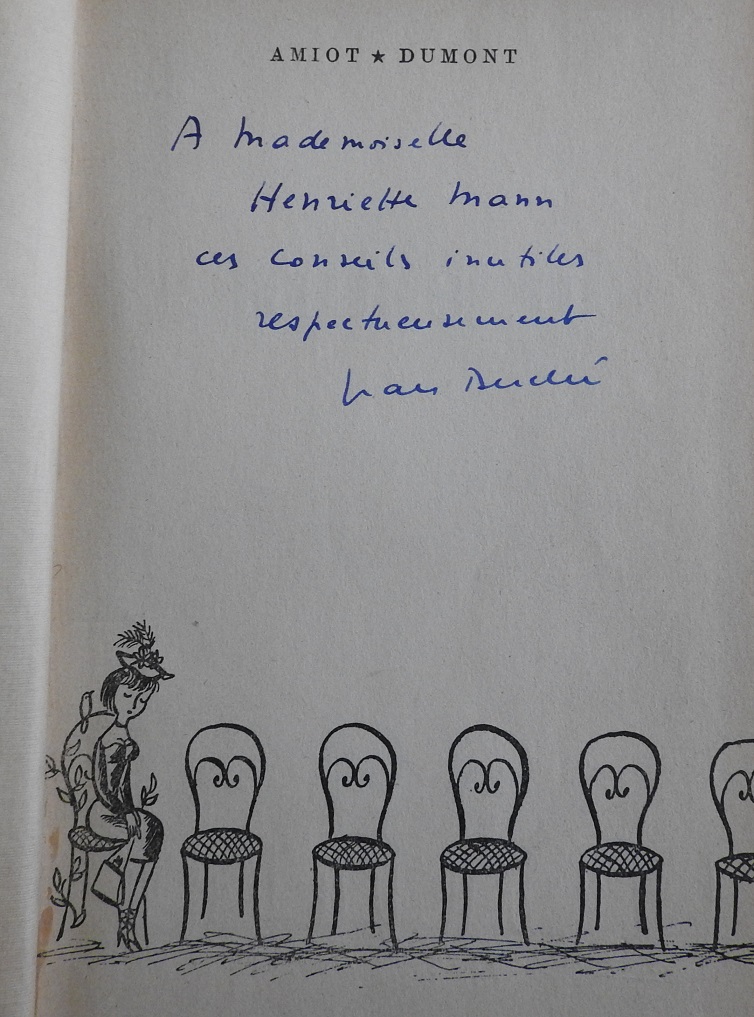 AMIOT ★ DUMONT
A Mademoiselle
Henriette Mann
ces conseils inutiles
respectueusement
Jean Duché